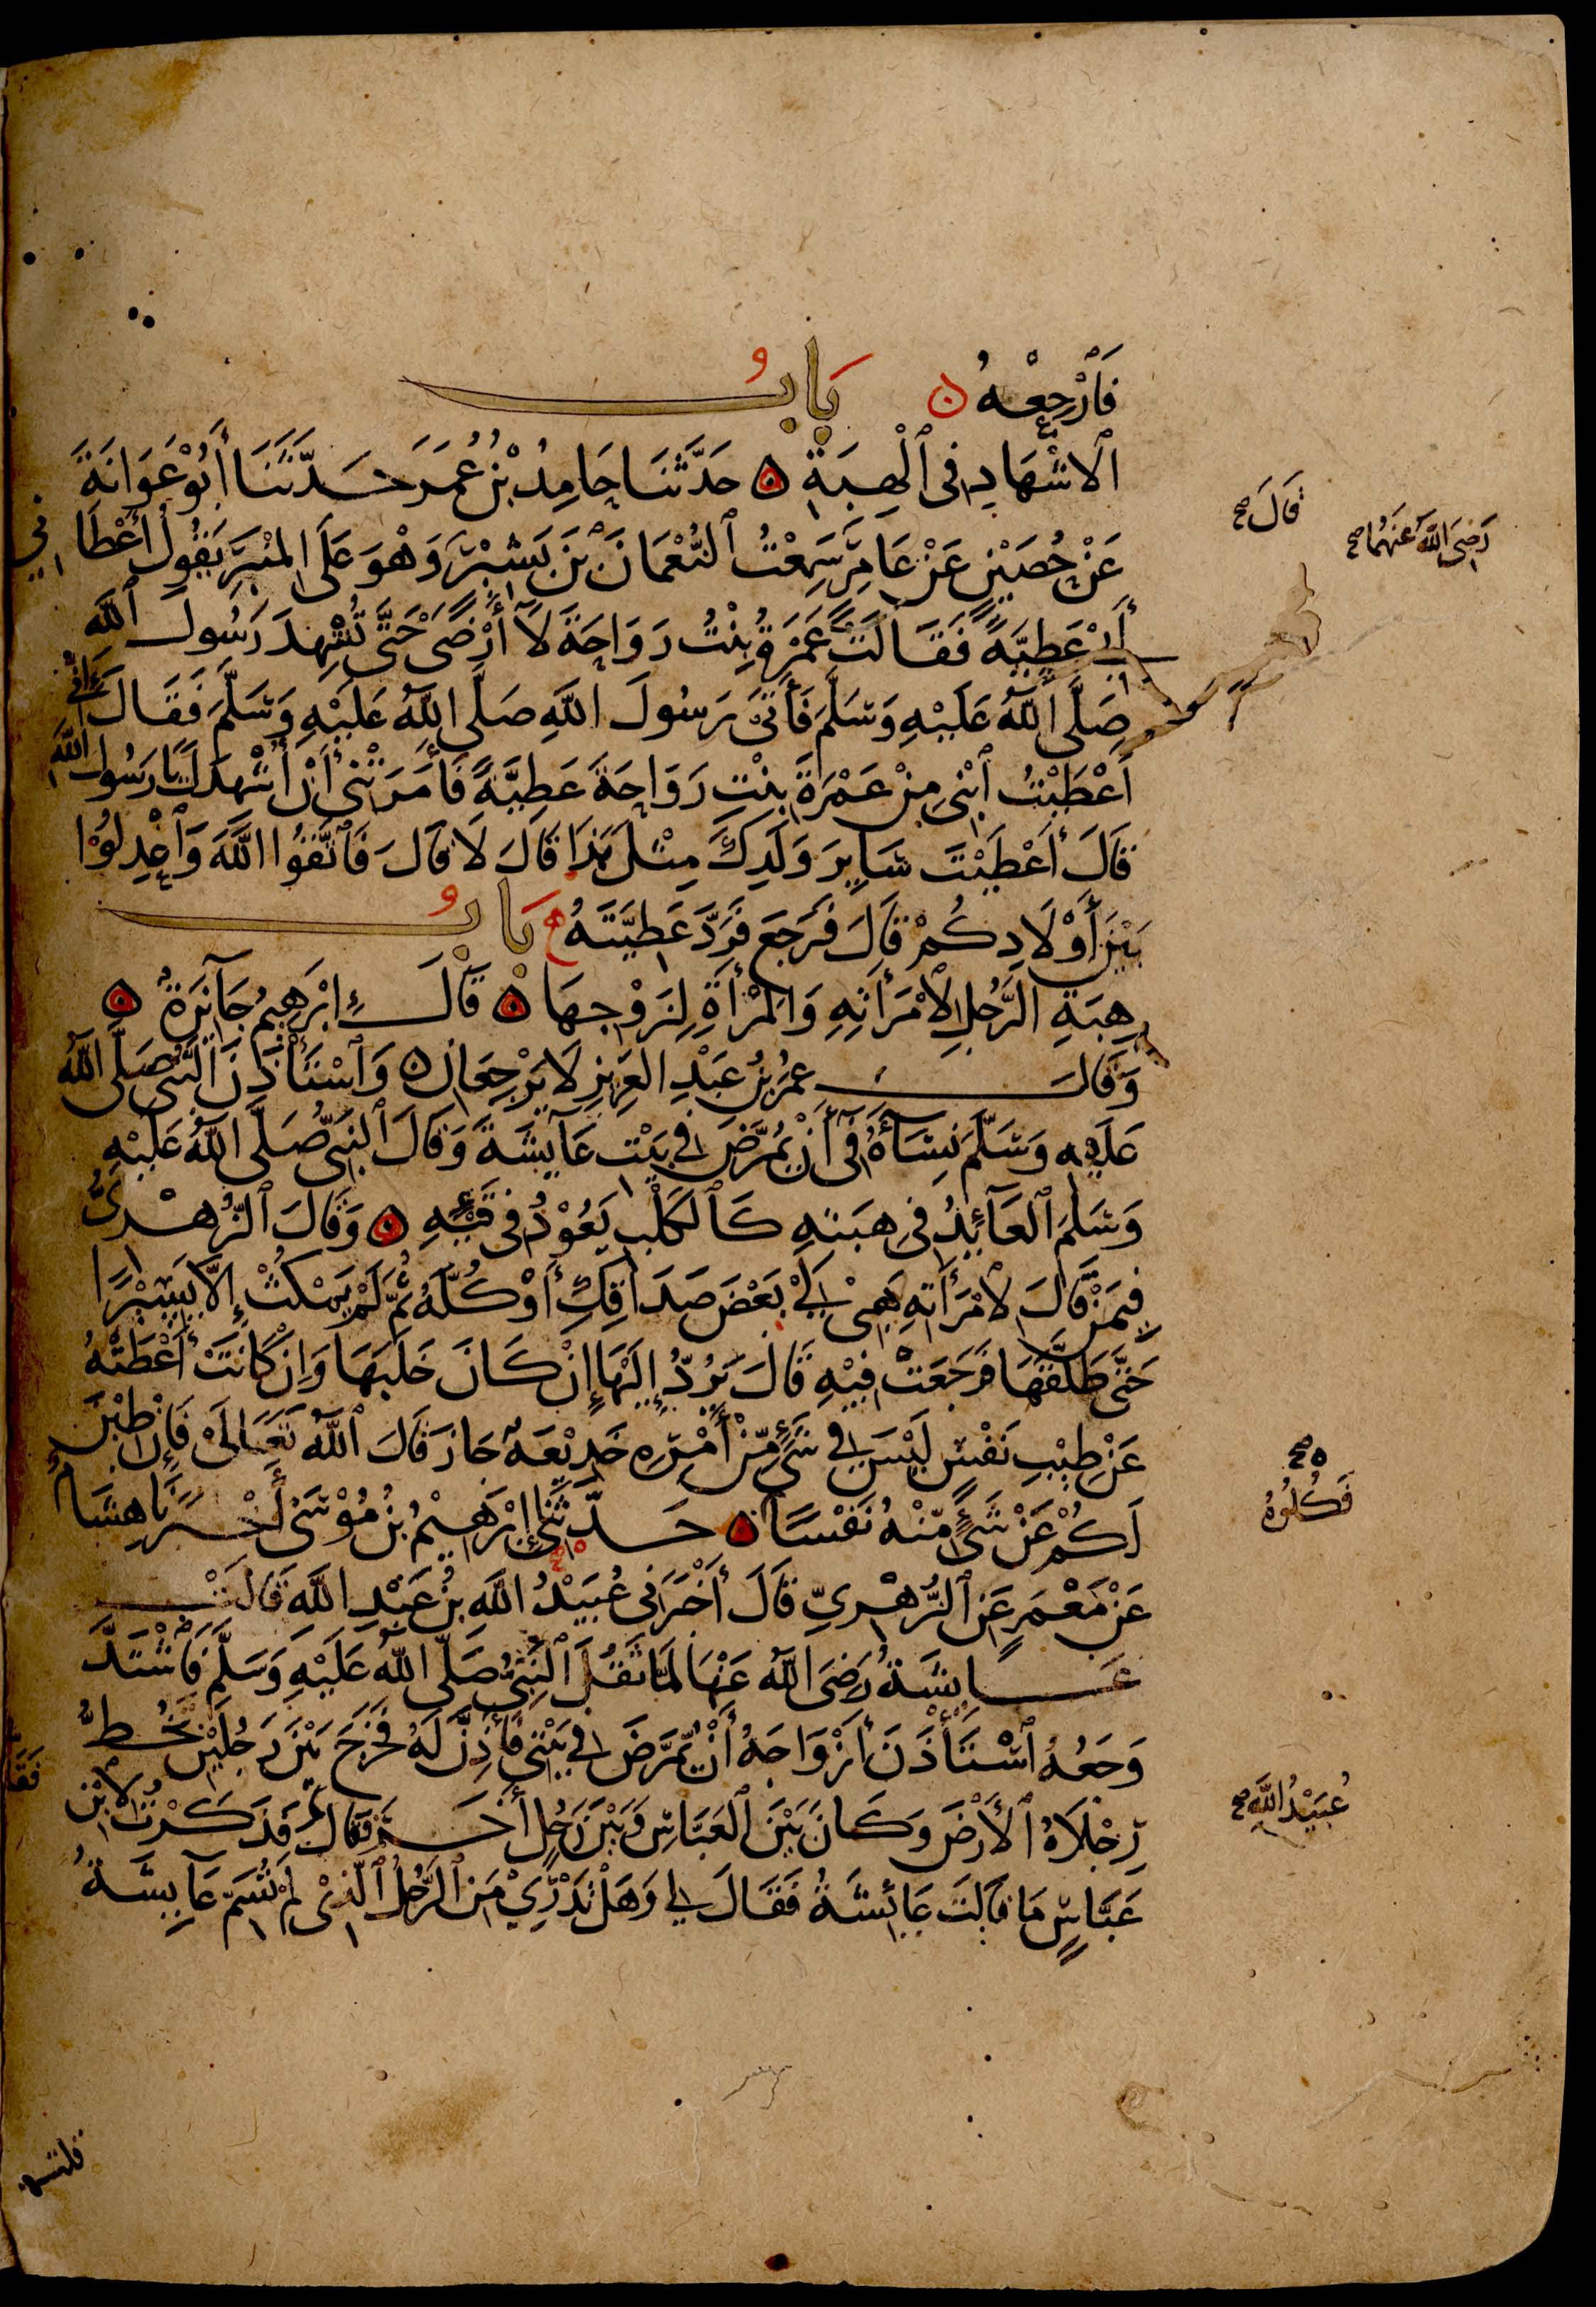 فَٱرْجِعْهُ بَابُ
ٱلْاشْهَادِ فِى ٱلْهِبَةِ حَدَّثَنَا حَامِدُ بْنُ عُمَرَ حَدَّثَنَا أَبُوْ عَوَانَةَ
عَنْ حُصَيْنٍ عَنْ عَامِرٍ سَمِعْتُ ٱلنُّعْمَانَ بْنَ بَشِيْرٍ وَهْوَ عَلَى المِنْبَرِ يَقُولُ أَعْطَانِي
أَبِيْ عَطِيَّةً فَقَالَتْ عَمْرَةُ بِنْتُ رَوَاحَةَ لَا أَرْضَى حَتَّى تُشْهِدَ رَسُولَ ٱللَّهِ
صَلَّى اللَّهُ عَلَيْهِ وَسَلَّمَ فَأَتَى رَسُولَ اللَّهِ صَلَّى اللَّهُ عَلَيْهِ وَسَلَّمَ فَقَالَ إِنِّي
أَعْطَيْتُ ٱبْنِى مِنْ عَمْرَةَ بِنْتِ رَوَاحَةَ عَطِيَّةً فَأَمَرَتْنِى أَنْ أُشْهِدَكَ يَا رَسُولَ اللَّهِ
قَالَ أَعْطَيْتَ سَايِرَ وَلَدِكَ مِثْلَ هَذَا قَالَ لَا قَالَ فَٱتَّقُوا اللَّهَ وَٱعْدِلُوْا
بَيْنَ أَوْلَادِكُمْ قَالَ فَرَجَعَ فَرَدَّ عَطِيَّتَهُ بَابُ
هِبَةِ الرَّجُلِ لِامْرَأَتِهِ وَالمَرْأَةِ لِزَوْجِهَا قَالَ إِبْرَهِيمُ جَآئِزَةٌ
وَقَالَ عُمَرُ بْنُ عَبْدِ العَزِيزِ لَا يَرْجِعَانِ وَٱسْتَأْذَنَ النَّبِىُّ صَلَّى اللَّهُ
عَلَيْهِ وَسَلَّمَ نِسَآءَهُ فِى أَنْ يُمَرَّضَ فِى بَيْتِ عَآيِشَةَ وَقَالَ النَّبِىُّ صَلَّى اللَّهُ عَلَيْهِ
وَسَلَّمَ ٱلْعَآئِدُ فِى هِبَتِهِ كَٱلْكَلْبِ يَعُوْدُ فِى قَيْئِهِ وَقَالَ ٱلزُّهْرِىُّ
فِيمَنْ قَالَ لِامْرَأَتِهِ هَبِىْ لِيْ بَعْضَ صَدَاقِكِ أَوْ كُلَّهُ ثُمَّ لَمْ يَمْكُثْ إِلَّا يَسِيْرًا
حَتَّى طَلَّقَهَا فَرَجَعَتْ فِيْهِ قَالَ يَرُدُّ إِلَيْهَا إِنْ كَانَ خَلَبَهَا وَإِنْ كَانَتْ أَعْطَتْهُ
عَنْ طِيْبِ نَفْسٍ لَيْسَ فِى شَىْءٍ مِّنْ أَمْرِهِ خَدِيْعَةٌ جَازَ قَالَ ٱللَّهُ تَعَالَىْ فَإِنْ طِبْنَ
لَكُمْ عَنْ شَىْءٍ مِّنْهُ نَفْسًا حَدَّثَنِى إِبْرَهِيْمُ بْنُ مُوْسَى أَخْبَرَنَا هِشَامٌ
عَنْ مَعْمَرٍ عَنِ ٱلزُّهْرِىِّ قَالَ أَخْبَرَنِى عُبَيْدُ اللَّهِ بْنُ عَبْدِ اللَّهِ قَالَتْ
عَايِشَةُ رَضِىَ اللَّهُ عَنْهَا لَمَّا ثَقُلَ النَّبِىُّ صَلَّى اللَّهُ عَلَيْهِ وَسَلَّمَ فَٱشْتَدَّ
وَجَعُهُ ٱسْتَأْذَنَ أَزْوَاجَهُ أَنْ يُّمَرَّضَ فِى بَيْتِى فَأَذِنَّ لَهُ فَخَرَجَ بَيْنَ رَجُلَيْنِ تَخُطُّ
رِجْلَاهُ ٱلْأَرْضَ وَكَانَ بَيْنَ ٱلْعَبَّاسِ وَبَيْنَ رَجُلٍ أَخَرَ فَقَالَ فَذَكَرْتُ لِابْنِ
عَبَّاسٍ مَا قَالَتْ عَائِشَةُ فَقَالَ لِي وَهَلْ تَدْرِيْ مَنِ ٱلرَّجُلُ ٱلَّذِىْ لَمْ تُسَمِّ عَآيِشَةُ
قَالَ صح
رَضِىَ اللَّهُ عَنْهُمَا صح
صح
فَكُلُوْهُ
عُبَيْدُ اللَّهِ صح